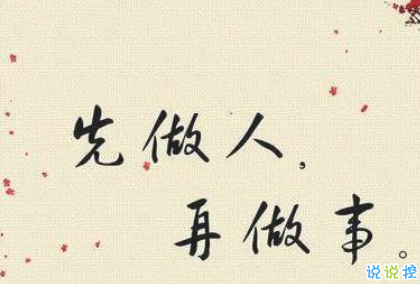 先做人，
再做事。
说说控